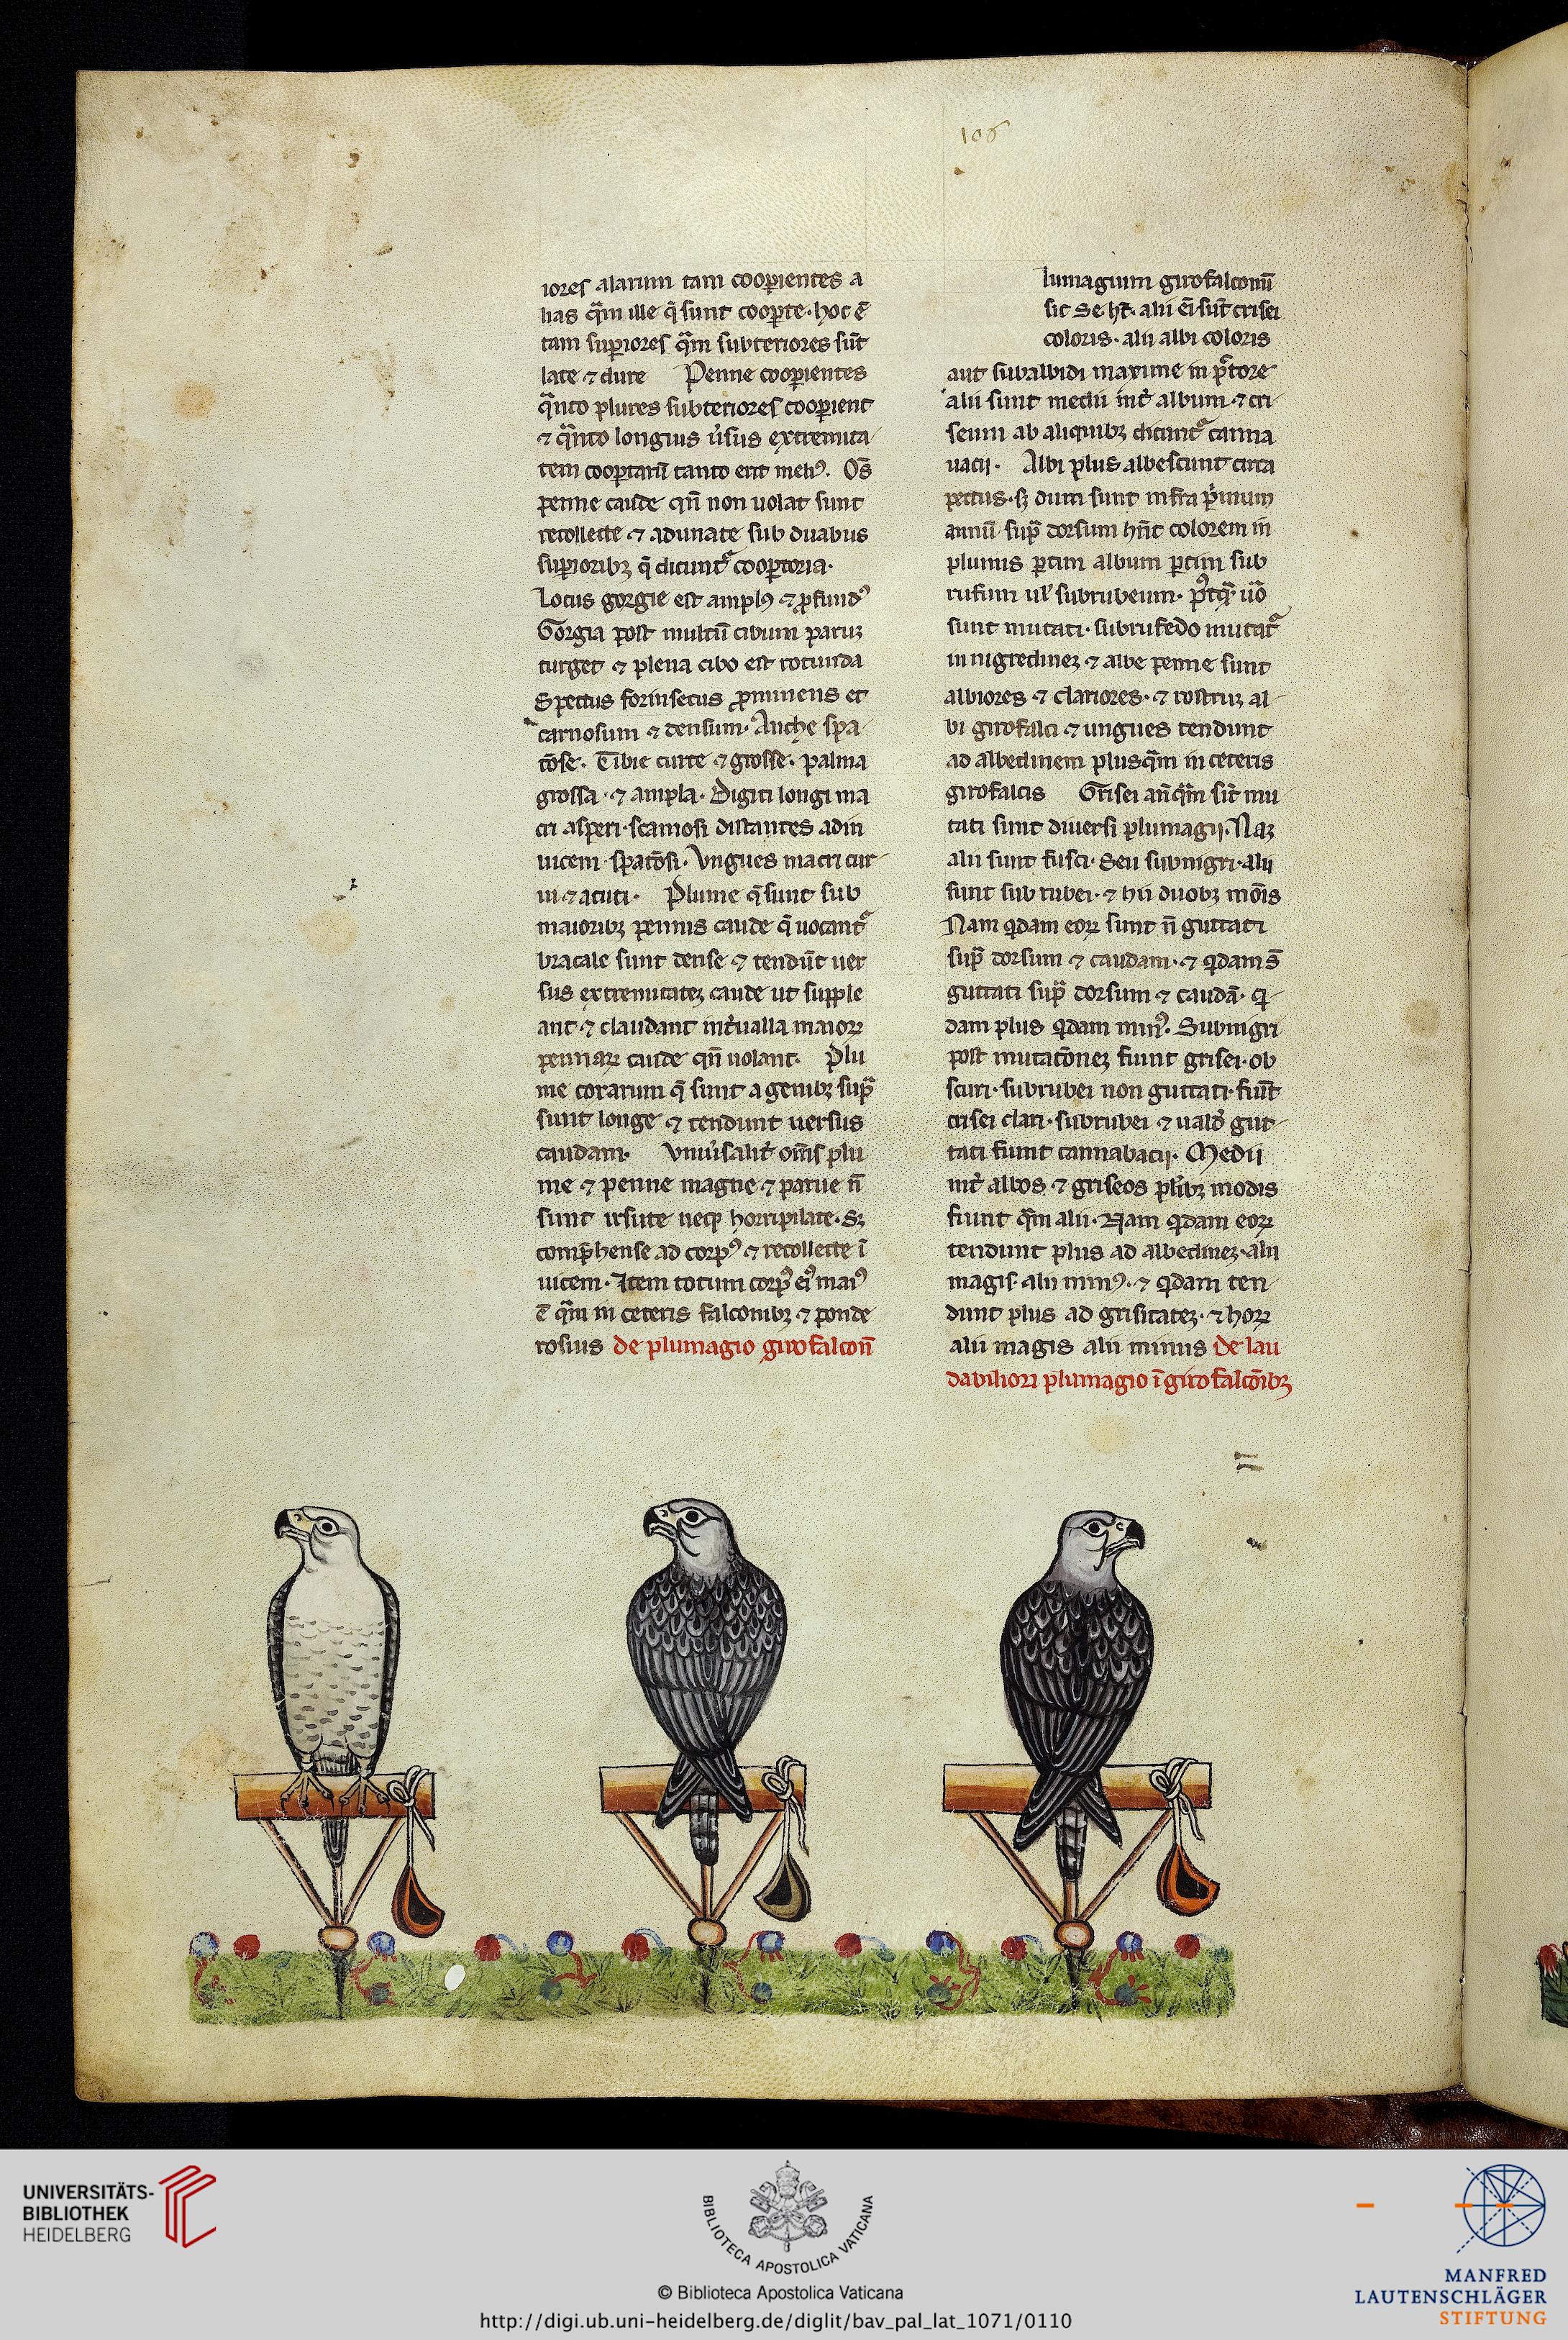 106
iores alarum tam cooꝑientes a
lias qͣm ille q̄ sunt cooꝑte· hoc ē
tam suꝑiores qͣm subteriores sūt
late ⁊ dure Penne cooꝑientes
qͣnto plures subteriores cooꝑient
⁊ qͣnto longius ũsus extremita
tem cooꝑtarū tanto erit meliꝰ. Oēs
penne caude qn̄ non uolat sunt
recollecte ⁊ adunate sub duabus
suꝑioribꝫ q̄ dicuntᷣ cooꝑtoria·
Locus gorgie est amplꝰ ⁊ ꝓfundꝰ
Gorgia post multū cibum parūꝫ
turget ⁊ plena cibo est rotunda
Spectus forinsecus ꝓminens et
carnosum ⁊ densum· Anche spa
cōse. Tibie curte ⁊ grosse· palma
grossa ⁊ ampla· Digiti longi ma
cri asperi· scamosi distantes adin
uicem spacōsi· Vngues macri cur
ui ⁊ acuti· Plume q̄ sunt sub
maioribꝫ pennis caude q̄ uocantᷣ
bracale sunt dense ⁊ tendūt uer
sus extremitateꝫ caude ut supple
ant ⁊ claudant int̉ualla maioꝝ
pennaꝝ caude qn̄ uolant· Plu
me coxarum q̄ sunt a genibꝫ supͣ
sunt longe ⁊ tendunt uersus
caudam· Vniũsalit̉ om̄s plu
me ⁊ penne magne ⁊ parue n̄
sunt irsute neqꝫ horripilate· Sꝫ
comp̄hense ad corpꝰ ⁊ recollecte ī
uicem· Item totum corpꝰ eiꝰ maiꝰ
ē qͣm in ceteris falconibꝫ ⁊ ponde
rosius de plumagio girofalcon̄
lumagium girofalconū
sic se hꝫt· alii ei̅ sūt crisei
coloris· alii albi coloris
aut subalbidi maxime in pͨtore
alii sunt medii int̉ album ⁊ cri
seum ab aliquibꝫ dicuntᷣ canna
uacij· Albi plus albescunt circa
pectus· sꝫ dum sunt infra pͥmum
annū supͣ dorsum hn̄t colorem in
plumis ꝑtim album ꝑtim sub
rufum ul̉ subrubeum· pꝰtqͣ uͦo
sunt mutati· subrufedo mutatᷣ
in nigredineꝫ ⁊ albe penne sunt
albiores ⁊ clariores· ⁊ rostrūꝫ al
bi girofalci ⁊ ungues tendunt
ad albedinem plusqͣm in ceteris
girofalcis Grisei an̄qͣm sīt mu
tati sunt diuersi plumagij· Naꝫ
alii sunt fusci· Seu subnigri· alii
sunt sub rubei· ⁊ hii duobꝫ mōis
Nam qͥdam eoꝝ sunt n̄ guttati
supͣ dorsum ⁊ caudam· ⁊ qͥdam s̄
guttati supͣ dorsum ⁊ caudā· qͥ
dam plus qͥdam minꝰ· Subnigri
post mutacōneꝫ fiunt grisei· ob
scuri· subrubei non guttati· fiūt
crisei clari· subrubei ⁊ uald̉ gut
tati fiunt cannabacij· Medii
int̉ albos ⁊ griseos pl̉ibꝫ modis
fiunt qͣm alii· Nam qͥdam eoꝝ
tendunt plus ad albedineꝫ· alii
magis· alii minꝰ· ⁊ qͥdam ten
dunt plus ad grisitateꝫ· ⁊ hoꝝ
alii magis alii minus de lau
dabiliori plumagio ī girofalcōībꝫ
UNIVERSITÄTS-
BIBLIOTHEK
HEIDELBERG
BIBLIOTECA APOSTOLICA VATICANA
© Biblioteca Apostolica Vaticana
http://digi.ub.uni-heidelberg.de/diglit/bav_pal_lat_1071/0110
MANFRED
LAUTENSCHLÄGER
STIFTUNG